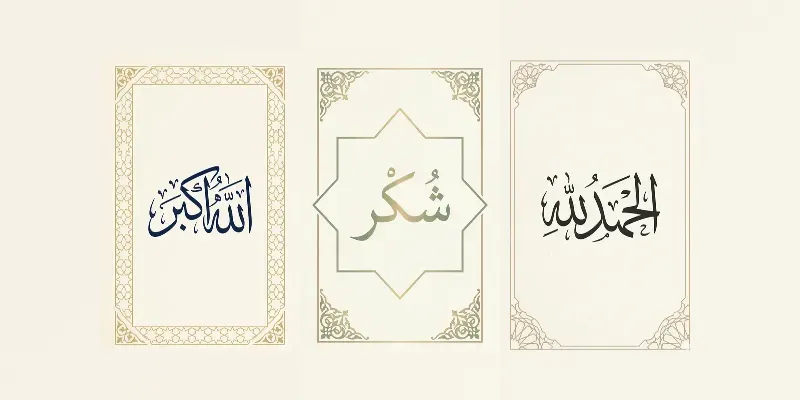 اللَّهُ أَكْبَر
شُكْر
الْحَمْدُ لِلَّهِ